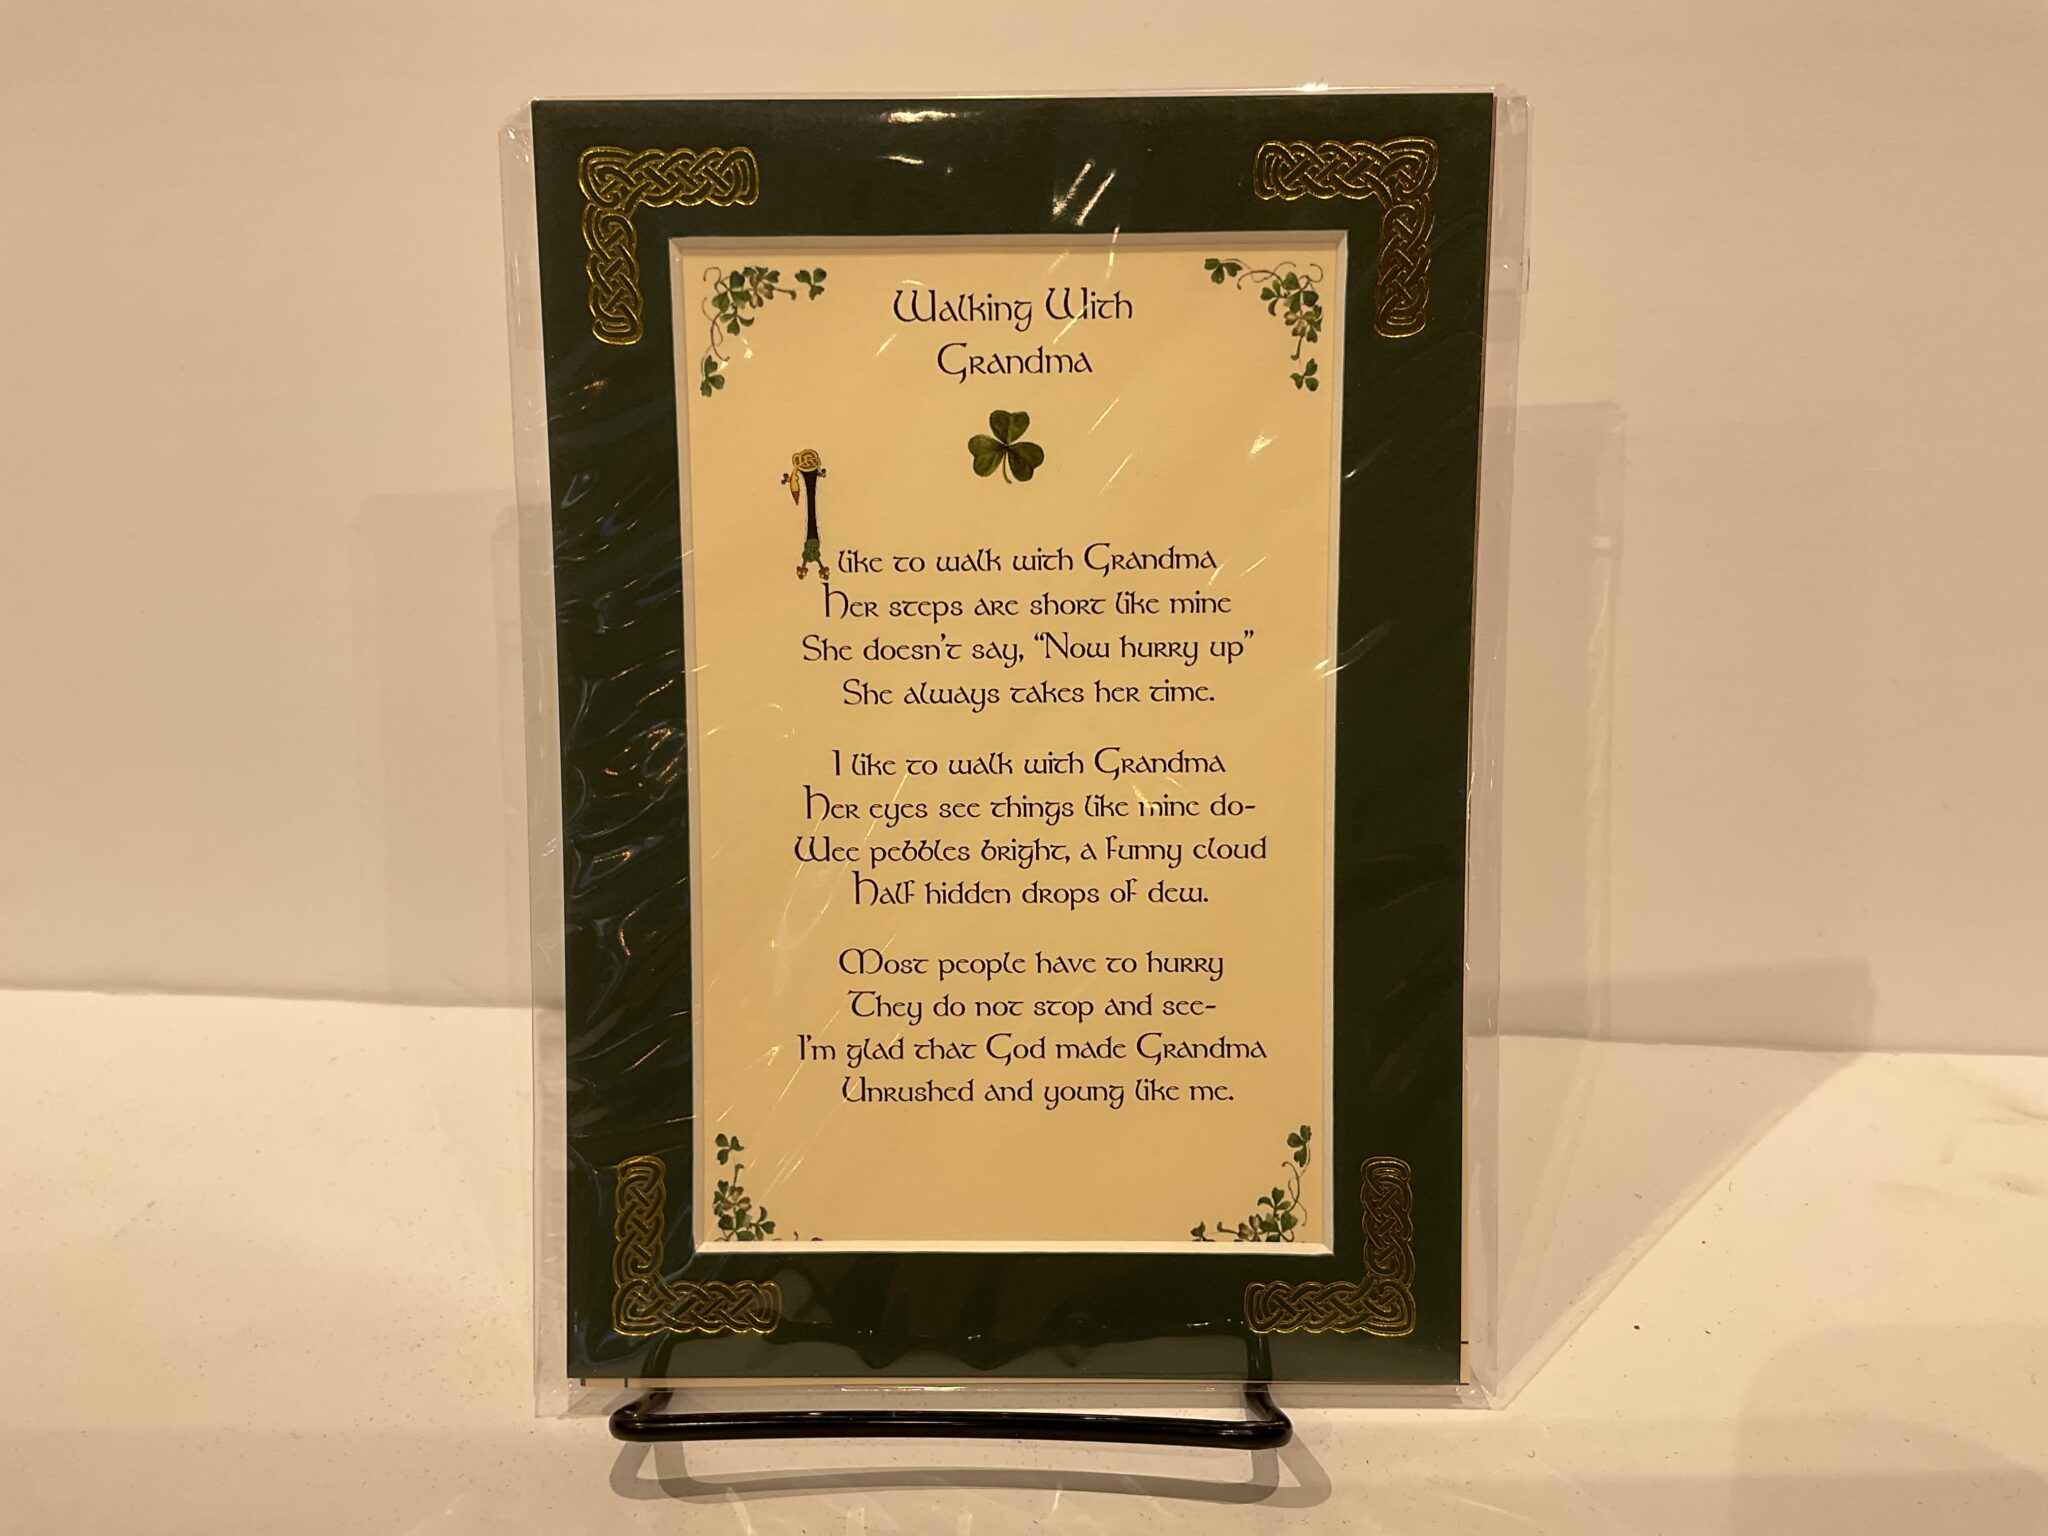 Walking With
Grandma
I like to walk with Grandma
Her steps are short like mine
She doesn't say, “Now hurry up”
She always takes her time.
I like to walk with Grandma
Her eyes see things like mine do-
Wee pebbles bright, a funny cloud
Half hidden drops of dew.
Most people have to hurry
They do not stop and see-
I'm glad that God made Grandma
Unrushed and young like me.